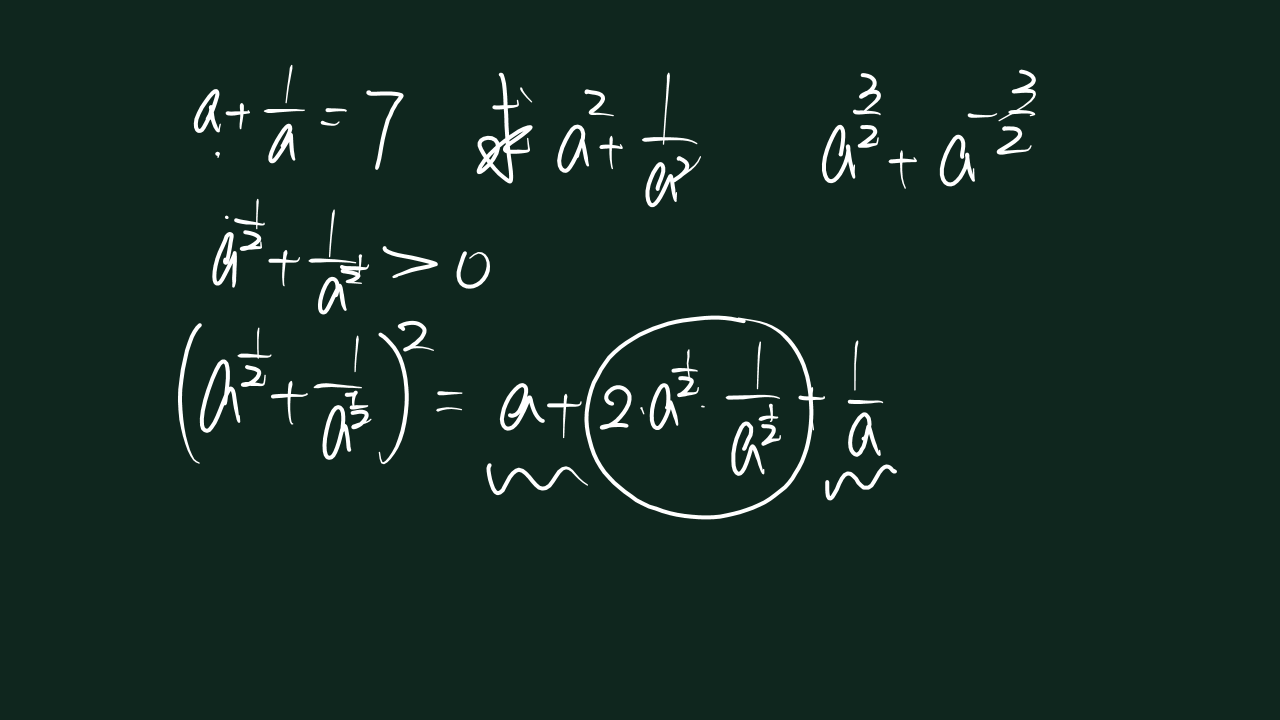 a + 1/a = 7 求 a² + 1/a² a^(3/2) + a^(-3/2)
a^(1/2) + 1/a^(1/2) > 0
(a^(1/2) + 1/a^(1/2))² = a + 2·a^(1/2)·1/a^(1/2) + 1/a